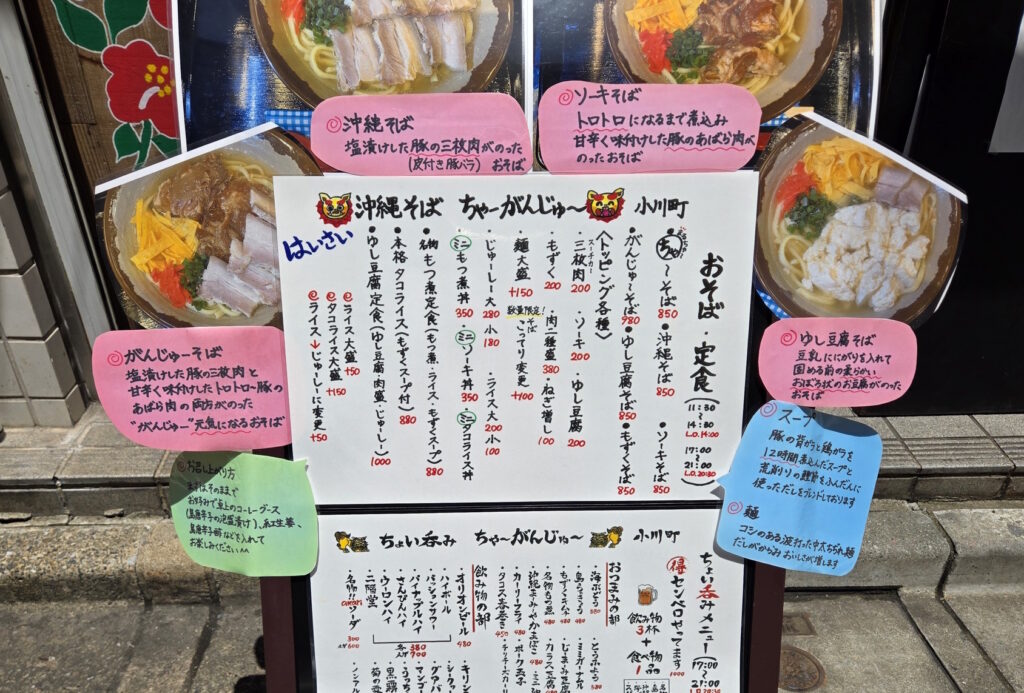 沖縄そば
塩漬けした豚の三枚肉がのった
(皮付き豚バラ) おそば
ソーキそば
トロトロになるまで煮込み
甘辛く味付けした豚のあばら肉が
のったおそば
沖縄そば ちゃーがんじゅ〜 小川町
はいさい
おそば・定食 (11:30〜L.O.14:00 17:00〜21:00 L.O.20:30)
〜そば 850 ・沖縄そば 850 ・ソーキそば 850
●がんじゅ〜そば 980 ●ゆし豆腐そば 850 ●もずくそば 850
〈トッピング各種〉
・三枚肉 200 ・ソーキ 200 ・ゆし豆腐 200
スーチカー
・もずく 200 ・肉二種盛 380 ・ねぎ増し 100
・麺大盛 +150 数量限定!そばこってり変更 +100
・じゅーしー大 280 小 180 ・ライス大 200 小 100
ミニもつ煮丼 350 ミニソーキ丼 350 ミニタコライス丼
●名物もつ煮定食(もつ煮・ライス・もずくスープ) 880
●本格タコライス(もずくスープ付) 880
●ゆし豆腐定食(ゆし豆腐・肉三種盛・じゅーしー) 1000
ライス大盛 +150
タコライス大盛 +150
ライス→じゅーしーに変更 +50
がんじゅーそば
塩漬けした豚の三枚肉と
甘辛く味付けしたトロトロ豚の
あばら肉の両方がのった
"がんじゅー"元気になるおそば
お召し上がり方
まずはそのままで
お好みで卓上のコーレーグース
(島唐辛子の泡盛漬け)、紅生姜、
島唐辛子等などを入れて
お楽しみください^^
ゆし豆腐そば
豆乳ににがりを入れて
固める前の柔らかい
おぼろ状のお豆腐がのった
おそば
スープ
豚の背ガラと鶏ガラを
12時間煮込んだスープと
荒削りの鰹節をふんだんに
使っただしをブレンドしております
麺
コシのある波打った中太ちぢれ麺
だしがからみおいしさが増します
ちょい呑み ちゃーがんじゅ〜 小川町
ちょい呑みメニュー (17:00〜21:00 L.O.20:30)
得 センベロやってます 1000
飲み物3杯+食べ物1品
おつまみの部
・海ぶどう 580
・島らっきょう 480
・もずくキムチ 480
・名物もつ煮
・沖縄まーみやかまぼこ
・カーリーフライ
・タコス春巻き 450
・ミミガーナムル
・じーまーみ豆腐
・カラス豆腐
・ポーク玉子
飲み物の部
オリオンビール 480
・ハイボール
・パッションサワー
・パイナップルハイ
・さんぴんハイ
・ウーロンハイ
各 380
大サイズ 700
・二階堂
・名物!!ソーダ 300
大サイズ 600